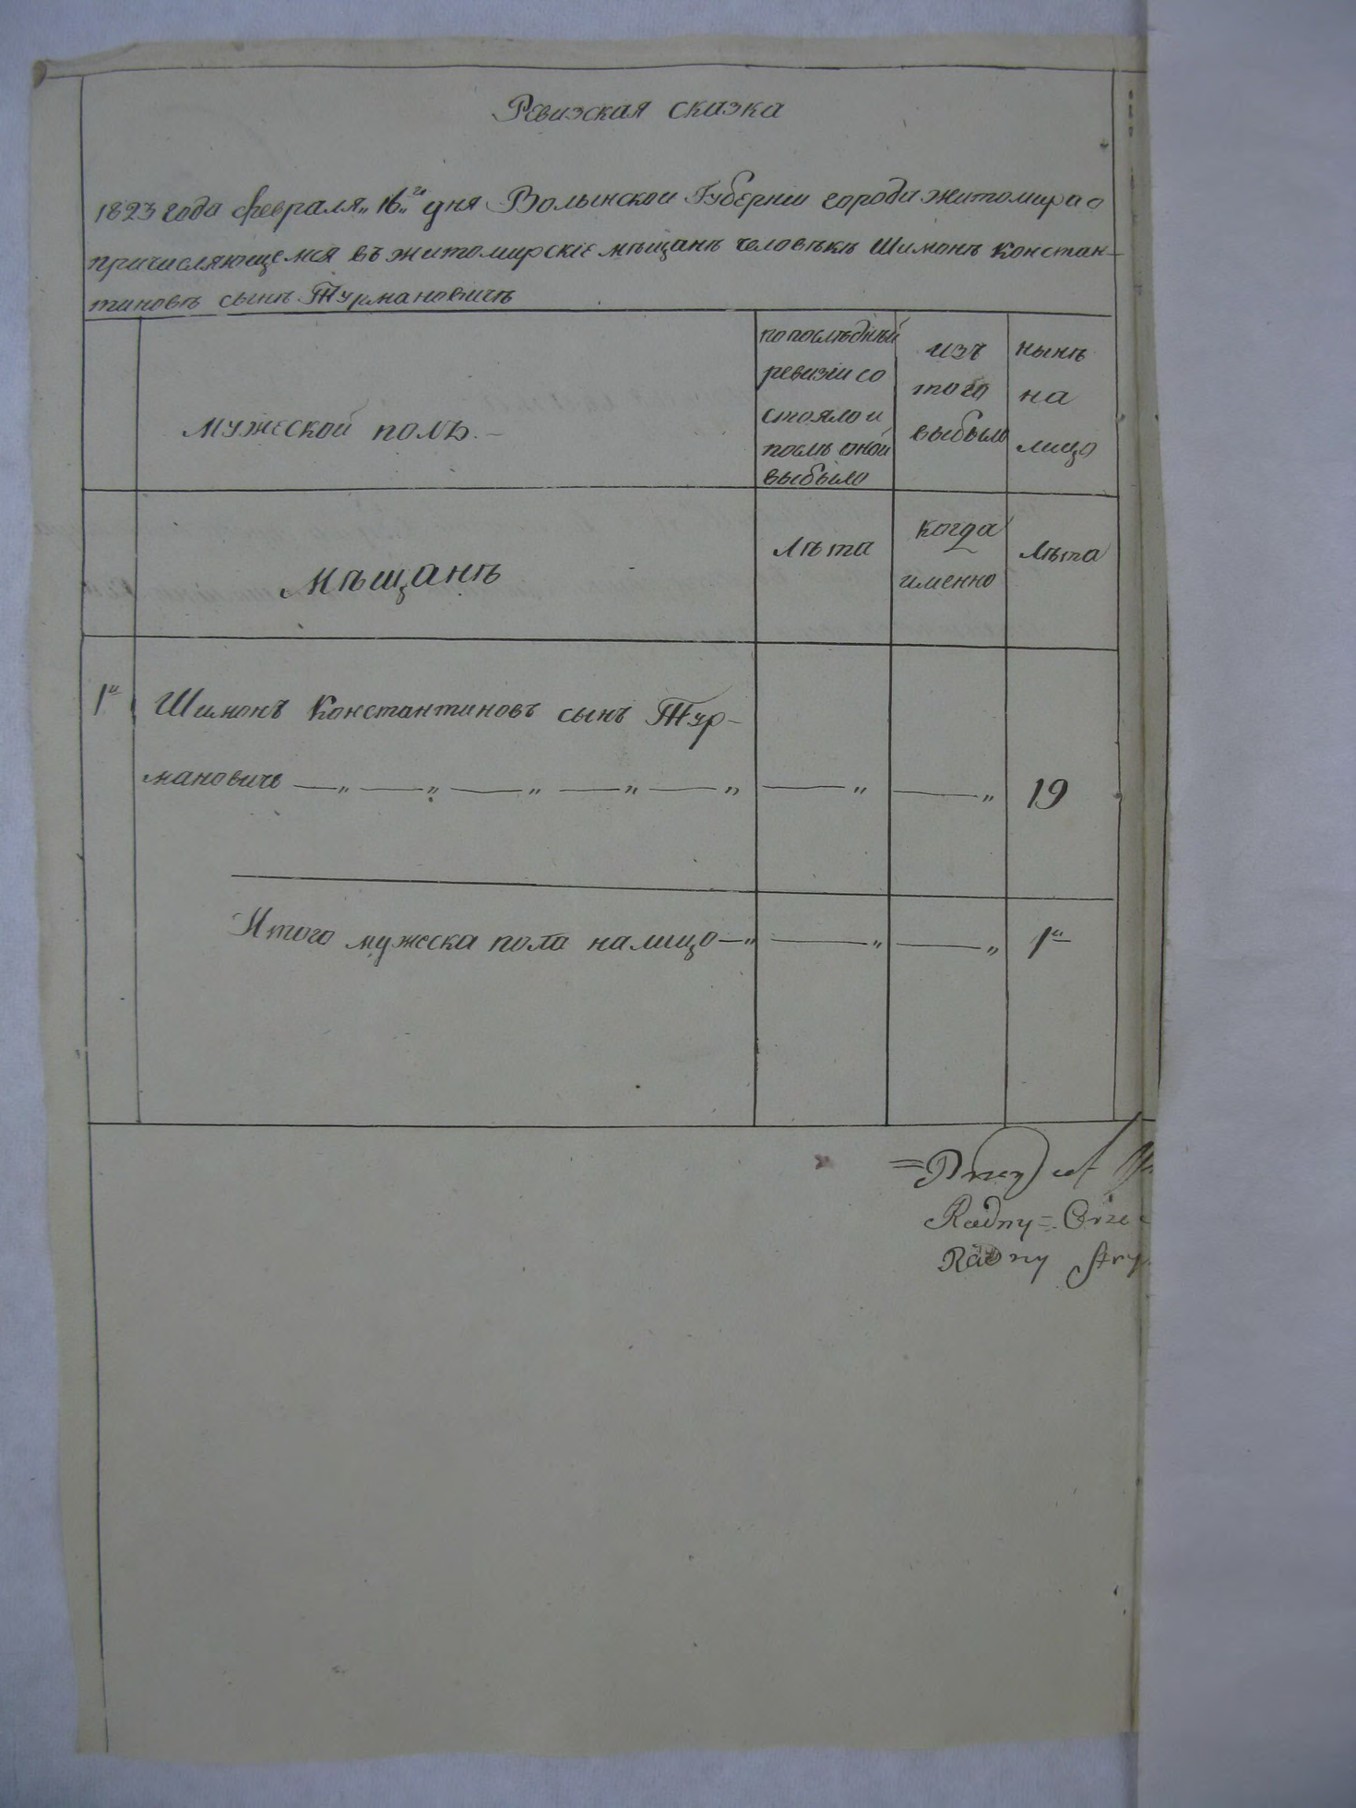 Ревизская сказка
1823 года февраля „16„го дня Волынской Губернии города Житомира о
причисляющемся въ житомирскіе мѣщанѣ человѣкѣ Шимонѣ Констан-
тиновѣ сынѣ Турмановичѣ
мужеской полъ.-
по последнѣй
ревизіи со
стояло и
послѣ оной
выбыло
изъ
того
выбыло
нынѣ
на
лицо
Мѣщанѣ
Лѣта
когда
именно
Лѣта
1й
Шимонъ Константиновъ сынъ Тур-
мановичь —„ —„ —„ —„ —„ —„ —„ 19
Итого мужеска пола налицо —„ —„ —„ 1й
Radny =
Radny